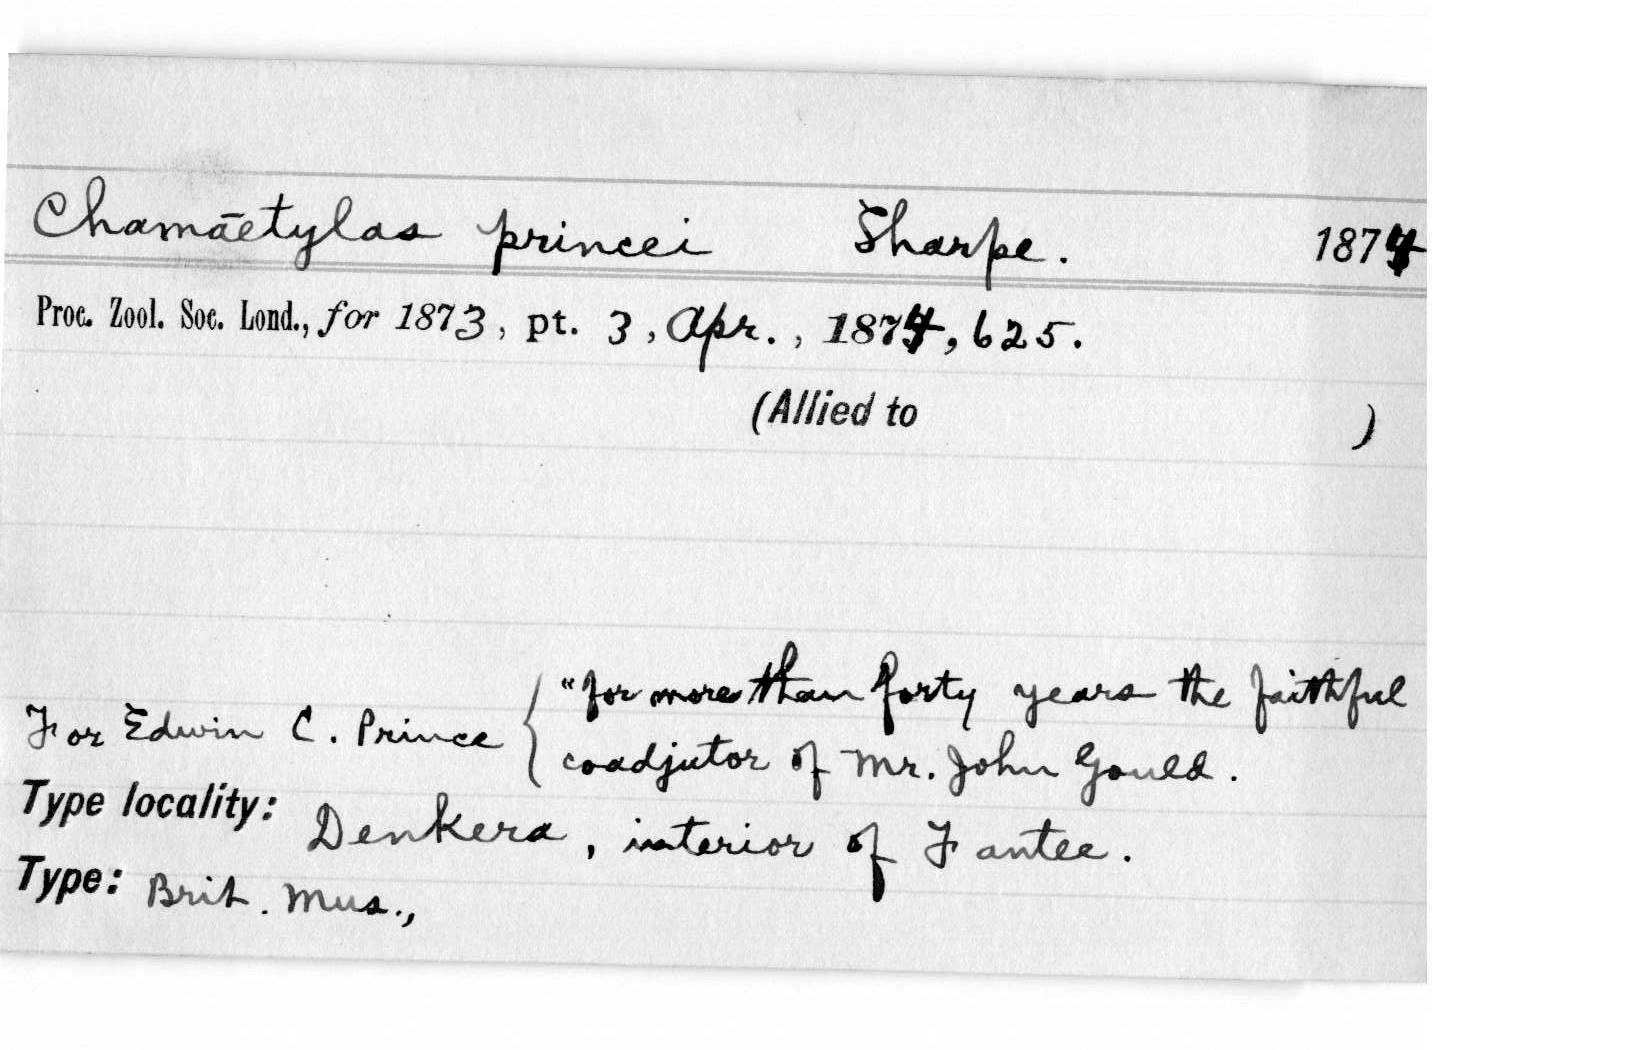 Chamaetylas princei Sharpe. 1874
Proc. Zool. Soc. Lond., for 1873, pt. 3, Apr., 1874, 625.
(Allied to )
For Edwin C. Prince { "for more than forty years the faithful
coadjutor of Mr. John Gould.
Type locality: Denkera, interior of Fantee.
Type: Brit. Mus.,